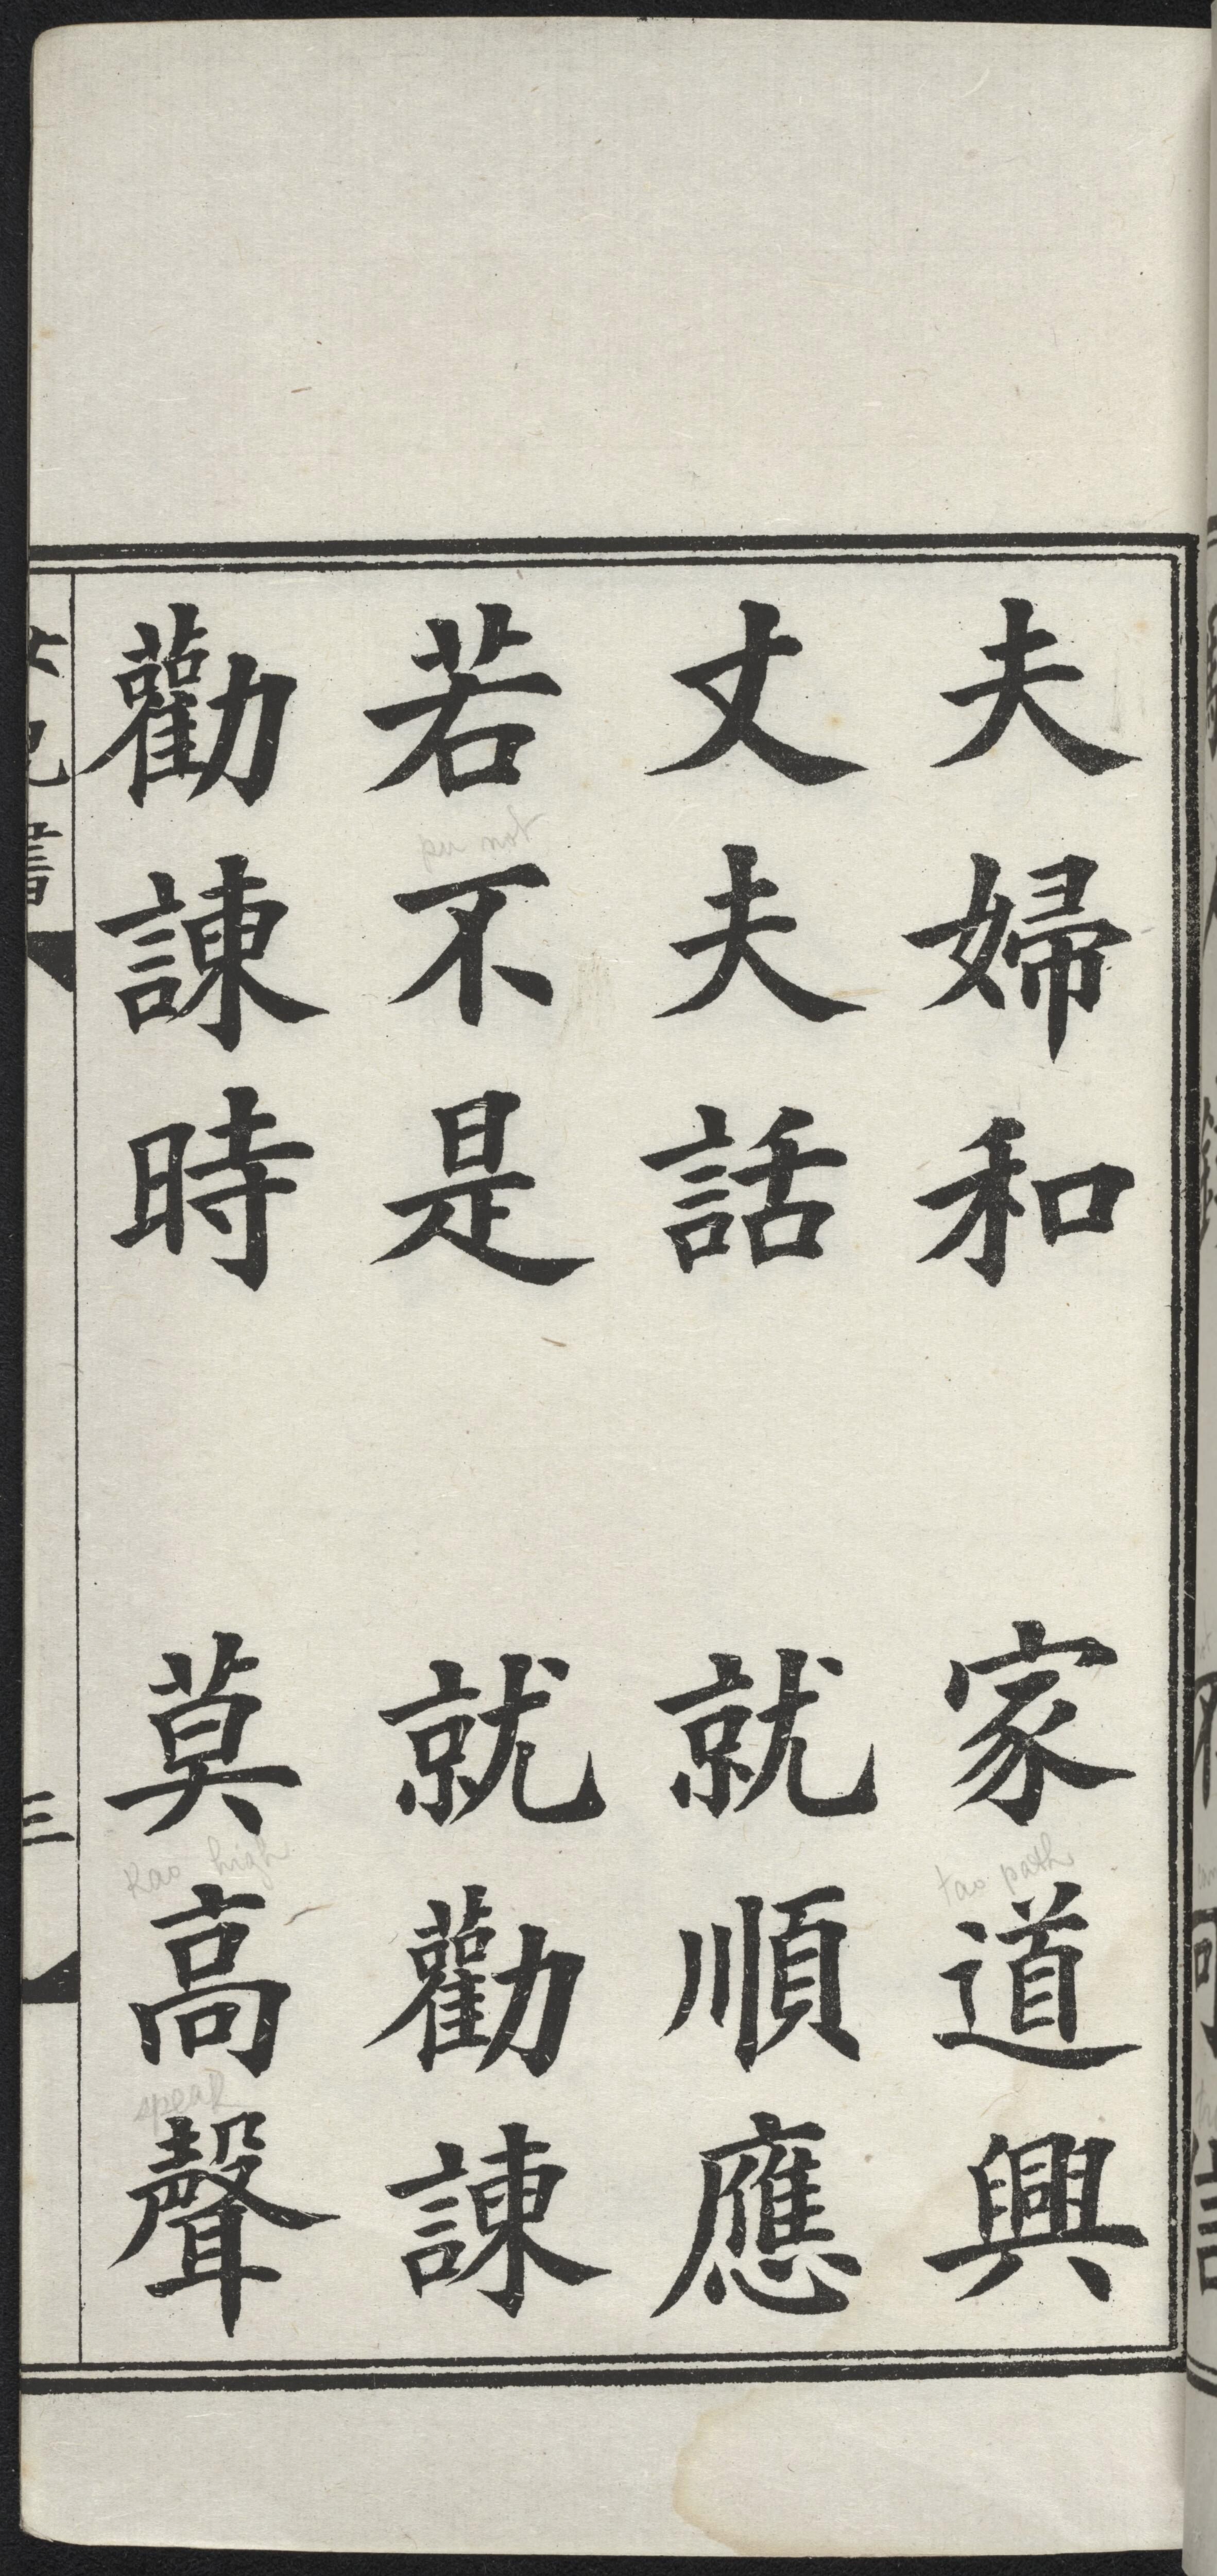 夫婦和　家道興
丈夫話　就順應
若不是　就勸諫
勸諫時　莫高聲
三
pu not
tao path
Kao high
speak